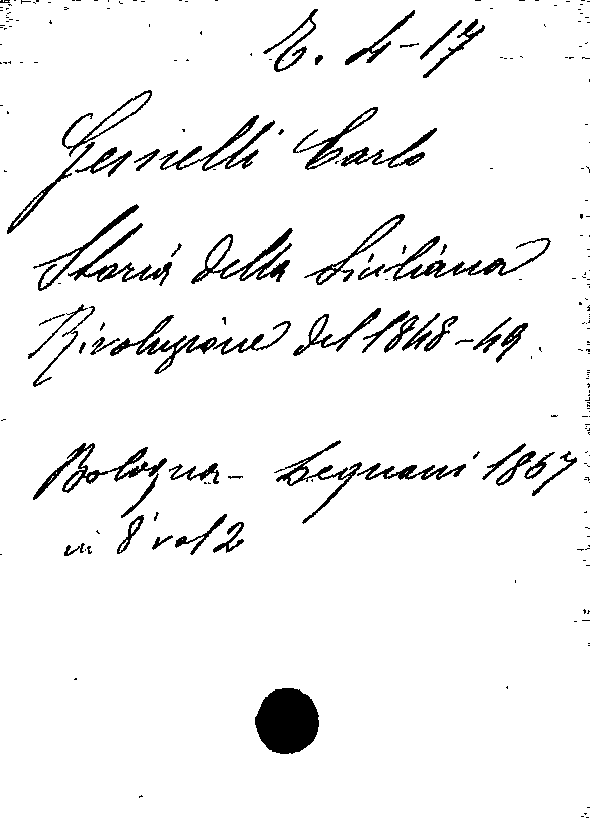 E. 4-17
Gemelli Carlo
Storia della Siciliana
Rivoluzione del 1848-49.
Bologna - Legnani 1867
in 8° vol 2